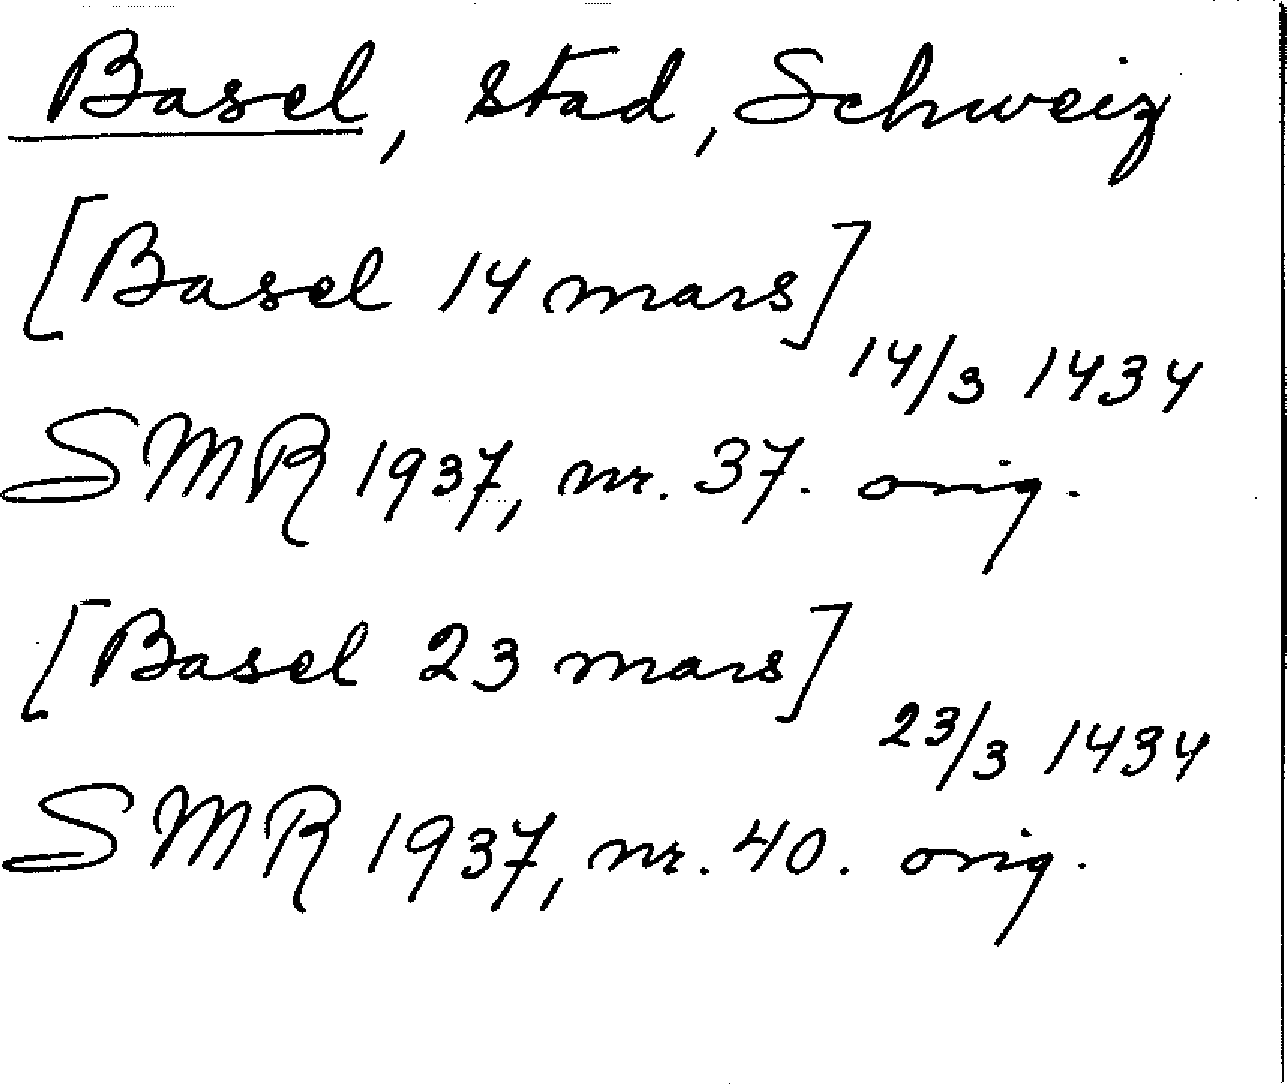 Basel, stad, Schweiz
[Basel 14 mars]
14/3 1434
SMR 1937, nr. 37. orig.
[Basel 23 mars]
23/3 1434
SMR 1937, nr. 40. orig.